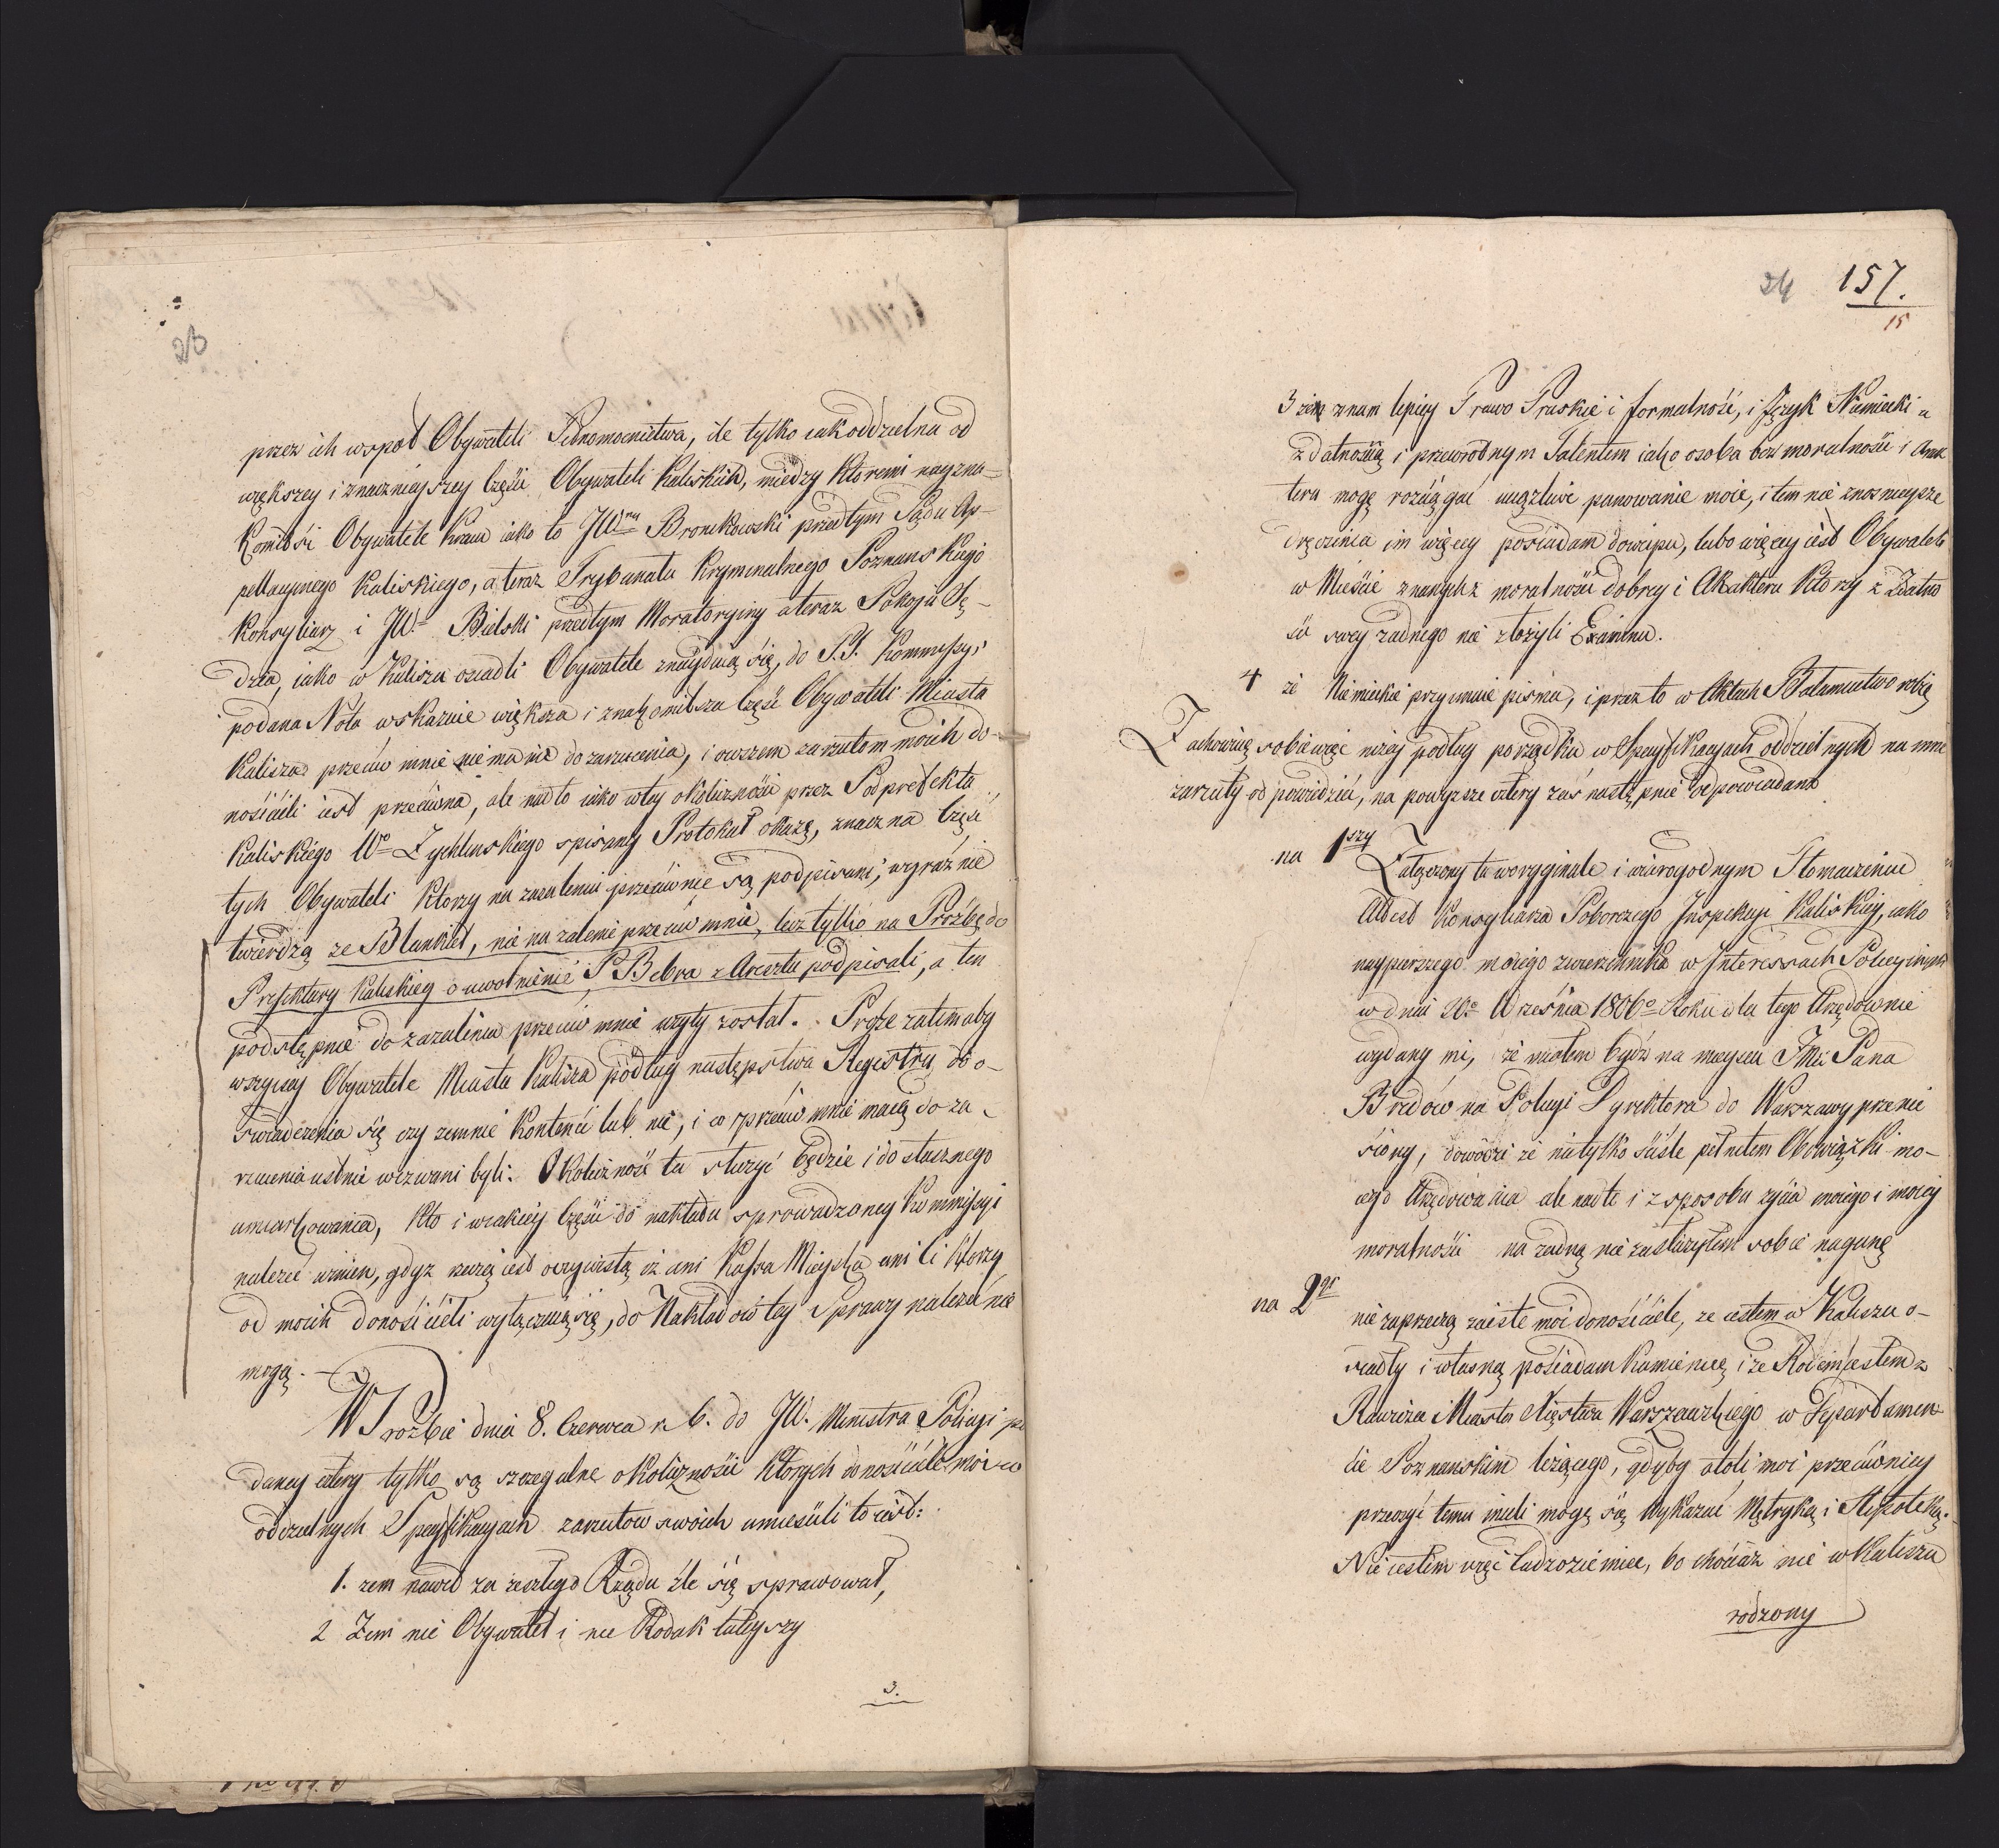 23
przez ich wspoł Obywateli Pełnomocnictwa, ile tylko iak oddzielna od
większey i znacznieyszey Części Obywateli Kaliskich, miedzy ktoremi nayzna-
komitsi Obywatele Kraiu iako to JW Bronikowski przedtym Sądu Ap-
pellacyinego Kaliskiego, a teraz Trybunału Kryminalnego Poznanskiego
Konsyliarz i JW. Bielski przedtym Moratoryiny a teraz Pokoju Sę-
dzia, iako w Kaliszu osiadli Obywatele znayduią się, do P.P. Kommissyi
podana Nota wskazuie większa i znakomitsza Część Obywateli Miasta
Kalisza przeciw mnie nie ma nic do zarzucenia, i owszem zarzutom moich do-
nosicieli iest przeciwna, ale nadto iako w tey okoliczności przez Podprefekta
Kaliskiego Wo Zychlinskiego spisany Protokuł okaże, znaczna Część
tych Obywateli ktorzy na zażaleniu przeciwnie są podpisani, wyraźnie
twierdzą ze Blankiet, nie na zalenie przeciw mnie, lecz tylko na Prozbę do
Prefektury Kaliskiey o uwolnienie P Bebra z Aresztu podpisali, a ten
podstępnie do zazalenia przeciw mnie użyty został. Proszę zatem aby
wszyscy Obywatele Miasta Kalisza podług następstwa Regestru do o-
swiadczenia się czy zemnie Kontenci lub nie, i co przeciw mnie maią do za-
rzucenia ustnie wezwani byli. Okoliczność ta służyć będzie i do słusznego
umiarkowania, kto i w iakiey Części do nakładu sprowadzoney Kommissyi
nalezeć winien, gdyz rzeczą iest oczywistą iż ani Kassa Mieyska ani Ci ktorzy
od moich donosicieli wyłączaią się, do Nakładow tey Sprawy nalezeć nie
mogą.
W Prozbie dnia 8. Czerwca r. b. do JW. Ministra Policyi po
daney cztery tylko są szczegulne okoliczności ktorych donosiciele moi w
oddzielnych Specyfikacyach zarzutow swoich umiescili to iest:
1. zem nawet za zeszłego Rządu źle się sprawował,
2 Zem nie Obywatel i nie Rodak tuteyszy
3.
24 157.
15
3 zem znam lepiey Prawo Pruskie i formalność, i Język Niemiecki a
zdatnością i przewrotnym Talentem iako osoba bez moralności i Charak
teru mogę rozciągać uciążliwe panowanie moie, i tem nie znosnieysze
dręczenia im więcey posiadam dowcipu, lubo więcey iest Obywateli
w Mieście znanych z moralności dobrey i Charakteru ktorzy z Zdatno
ści swey żadnego nie złożyli Examinu.
4 że Niemieckie przyimuie pisma, i przez to w Aktach Bałamuctwo robię
Zachowuię sobie więc niżej podług porządku w Specyfikacyach oddzielnych na mnie
zarzuty odpowiedzieć, na powyższe cztery zaś następnie odpowiadam
na 1szy Załączony tu w oryginale i wiarogodnym Tłomaczeniu
Attest Konsyliarza Poborczego Inspekcyi Kaliskiey, iako
naypierszego moiego zwierzchnika w Interessach Policyinych
w dniu 20o Września 1806o Roku dla tego Urzędownie
wydany mi, że miałem bydź na mieysce JMci Pana
Bredow na Policyi Dyrektora do Warszawy przenie
siony, dowodzi że nie tylko ściśle pełniłem Obowiązki mo-
iego Urzędowania ale nadto i z sposobu życia moiego i moiey
moralności na zadną nie zasłużyłem sobie naganę
na 2gi nie zaprzeczą zaiste moi donosiciele, ze iestem w Kaliszu o-
siadły i własną posiadam Kamienicę i ze Rodem iestem z
Rawicza Miasta Xięstwa Warszawskiego w Departamen-
cie Poznanskim leżącego, gdyby atoli moi przeciwnicy
przeczyć temu mieli mogę się wykazać Metryką i Hypoteką.
Nie iestem więc Cudzoziemiec, bo chociaż nie w Kaliszu
rodzony